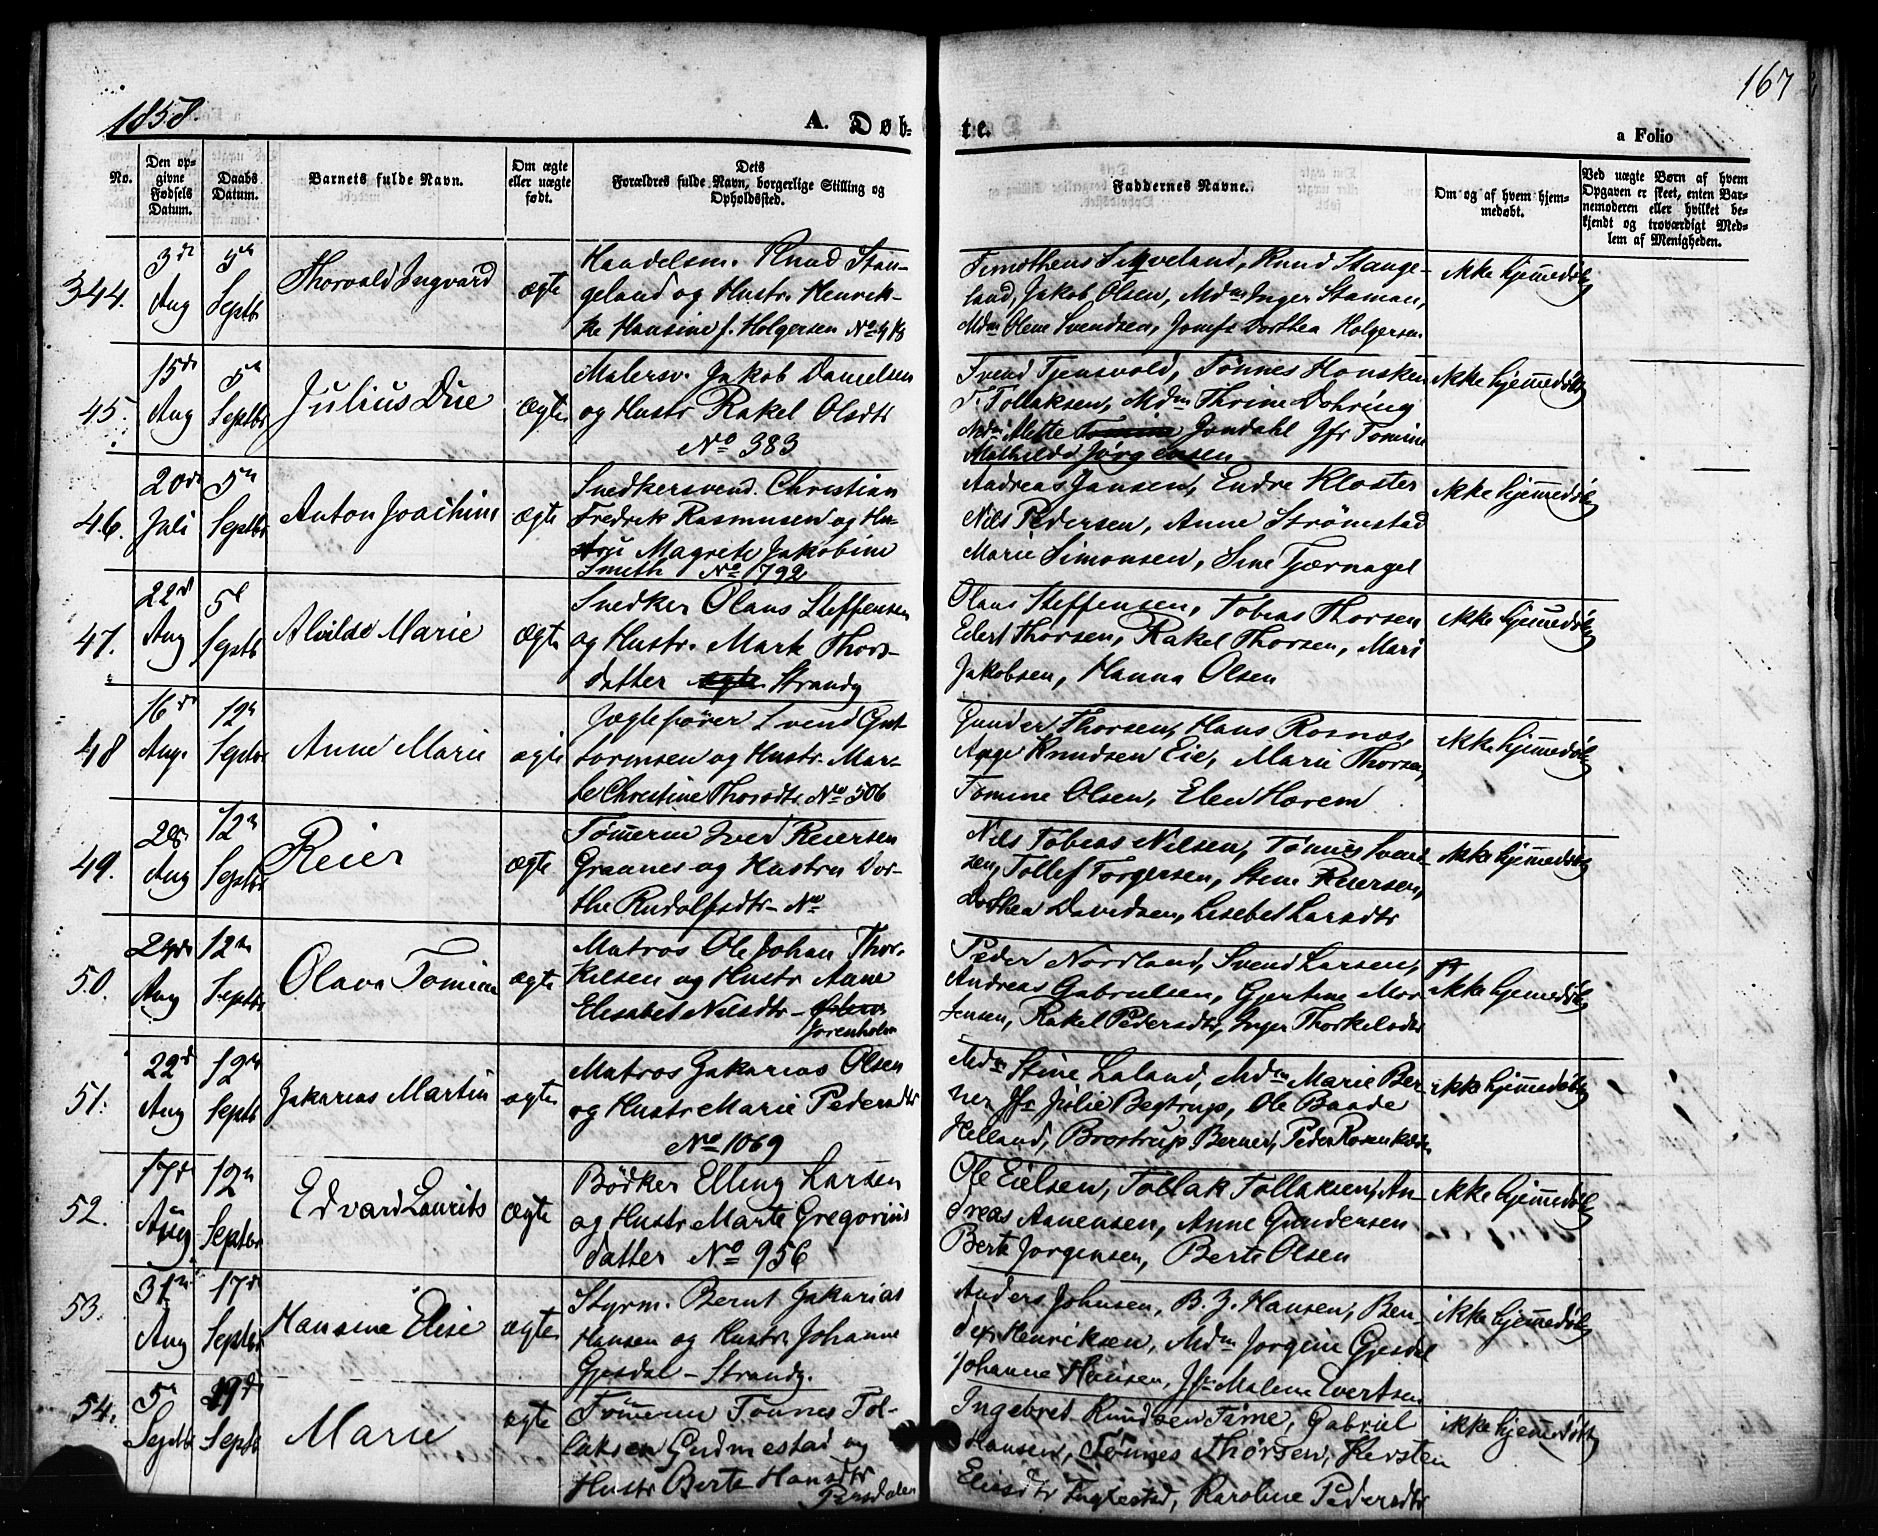 1858.
A. Døb-
te.
a Folio
167
No.
Den op-
givne
Fødsels
Datum.
Daabs
Datum.
Barnets fulde Navn.
Om ægte
eller uægte
født.
Dets
Forældres fulde Navn, borgerlige Stilling og
Opholdssted.
Faddernes Navne.
Om og af hvem hjem-
medøbt.
Ved uægte Børn af hvem
Opgaven er skeet, enten Bar-
nemoderen eller hvilket be-
kjendt og troværdigt Med-
lem af Menigheden.
344.
3di
Aug
5te
Septbr
Thorvald Ingvard
ægte
Handelsm. Knud Stan-
geland og Hustr. Henrik-
ke Hansine f. Holgersen No
Timotheus Sitveland, Knud Stange-
land, Jakob Olsen, Mdm Inger Staman,
Mdm Olene Svendsen, Jomfr Dorthea Holgersen
ikke hjemmedøbt
45.
15de
Aug
5te
Septbr
Julius Due
ægte
Malersv. Jakob Danielsen
og Hustr Rakel Olsdtr
No 383
Svend Tjensvold, Tønnes Hansken
T. Tollaksen, Mdm Thrine Dohring
Mdm Mette Jondahl Jfr Tomine
Mathilde Jørgensen
ikke hjemmedøbt
46.
20de
Juli
5te
Septbr
Anton Joachim
ægte
Snedkersvend. Christian
Fredrik Rasmusen og Hu-
stru Magrete Jakobine
Smith No 1792
Andreas Jansen, Endre Kloster
Nils Pedersen, Anne Strømstad
Marie Simonsen, Sine Tjærnagel
ikke hjemmedøbt
47.
22d
Aug
5te
Septb
Alvilde Marie
ægte
Snedker Olaus Steffensen
og Hustr. Marte Thors-
datter Strandg
Olaus Steffensen, Tobias Thorsen
Edert Thorsen, Rakel Thorsen, Mari
Jakobsen, Hanna Olsen
ikke hjemmedøbt
48
16de
Aug.
12te
Septbr
Anne Marie
ægte
Jægtefører Svend Gut-
tormsen og Hustr. Mar-
te Christine Thorsdtr. No 506
Gunder Thorsen, Hans Rosnæs,
Aage Knudsen Eie, Marie Thorsen,
Tomine Olsen, Elen Harem
ikke hjemmedøbt
49.
28
Aug
12te
Septbr
Reier
ægte
Tømmerm Iver Reiersen
Grannes og Hustru Dor-
the Rudolfsdtr - No
Nils Tobias Nilsen, Tønnes Svend-
sen, Tollef Torgersen, Stine Reiersen,
Dorthea Davidsen, Lisebet Larsdtr
ikke hjemmedøbt
50.
24de
Aug
12te
Septbr
Olava Tomine
ægte
Matros Ole Johan Thor-
kilsen og Hustr Anne
Elisabet Nilsdtr -
Jorenholm
Peder Nordland, Svend Larsen,
Andreas Gabrielsen, Gjertine Mor-
tensen, Rakel Pedersdtr, Inger Thorkelsdtr
ikke hjemmedøbt
51.
22d
Aug
12te
Septb
Zakarias Martin
ægte
Matros Zakarias Olsen
og Hustr Marie Pedersdtr
No 1069
Mdm Stine Laland, Mdm Marie Ber-
ner Jfr Julie Begtrup, Ole Baade
Helland, Brostrup Berner, Peder Rosenkilde
ikke hjemmedøbt
52.
17d
Aug
12te
Septbr
Edvard Laurits
ægte
Bødker Elling Larsen
og Hustr Marte Gregorius
datter No 956
Ole Eielsen, Tollak Tollaksen, An-
dreas Aanensen, Anne Gundersen
Berte Jørgensen, Berte Olsen
ikke hjemmedøbt
53.
31te
Aug
17d
Septbr
Hansine Elise
ægte
Styrm. Bernt Zakarias
Hansen og Hustr. Johanne
Gjesdal - Strandg.
Anders Johnsen, B. Z. Hansen, Ben-
dex Henriksen, Mdm Jorgine Gjesdal
Johanne Hansen, Jfr Malene Evertsen
ikke hjemmedøbt
54.
5te
Septb
19de
Septb
Marie
ægte
Tømmerm Tønnes Tol-
laksen Gudmestad og
Hustr Berte Hansdtr
Pedsdalen
Ingebret Knudsen Time, Gabriel
Hansen, Tønnes Thorsen, Kersten
Eliasdtr Fuglestad, Karoline Pedersdtr
ikke hjemmedøbt